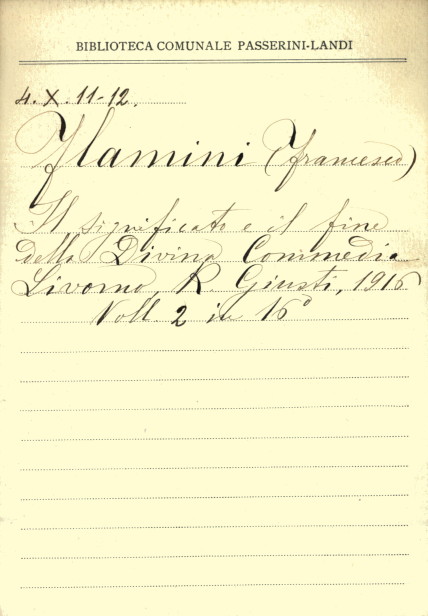 BIBLIOTECA COMUNALE PASSERINI-LANDI
4. X. 11-12.
Flamini (Francesco)
Il significato e il fine
della Divina Commedia
Livorno, R. Giusti, 1916
Voll. 2 in 16°